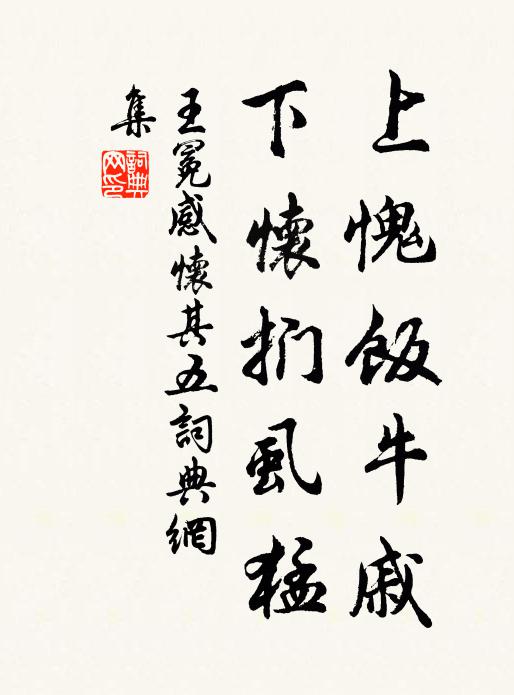 上愧飯牛戚
下懷捫虱猛
王冕感懷其五詞典網
集
詞典
网印